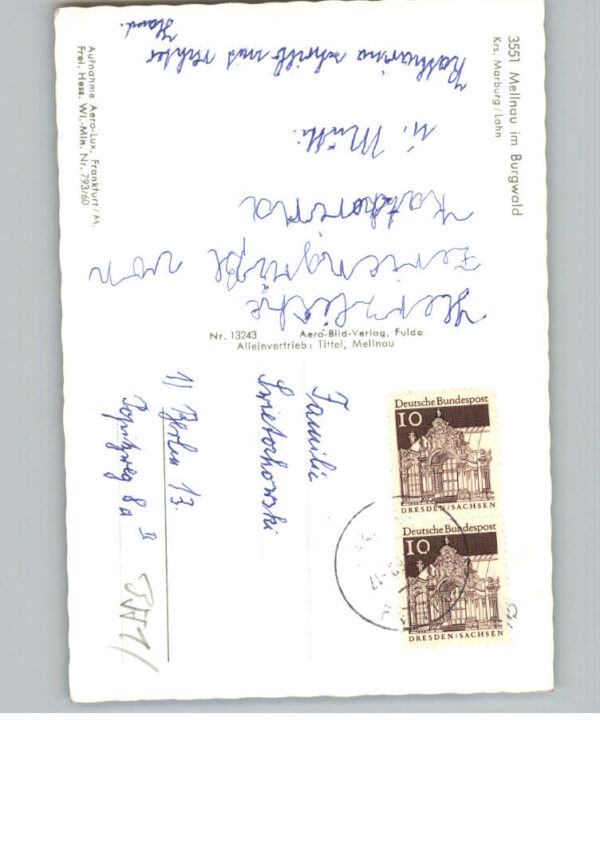 3551 Mellnau im Burgwald
Krs. Marburg/Lahn
Herzliche
Feriengrüße von
Katharina
u. Mutti.
Katharina schrieb mit rechter
Hand.
Aufnahme Aero-Lux, Frankfurt/M.
Frei. Hess. Wi.-Min. Nr. 793/60
Nr. 13243 Aero-Bild-Verlag, Fulda
Alleinvertrieb: Tittel, Mellnau
Deutsche Bundespost
10
DRESDEN/SACHSEN
Deutsche Bundespost
10
DRESDEN/SACHSEN
Familie
Swietochowski
1) Berlin 13
Popitzweg 8a II